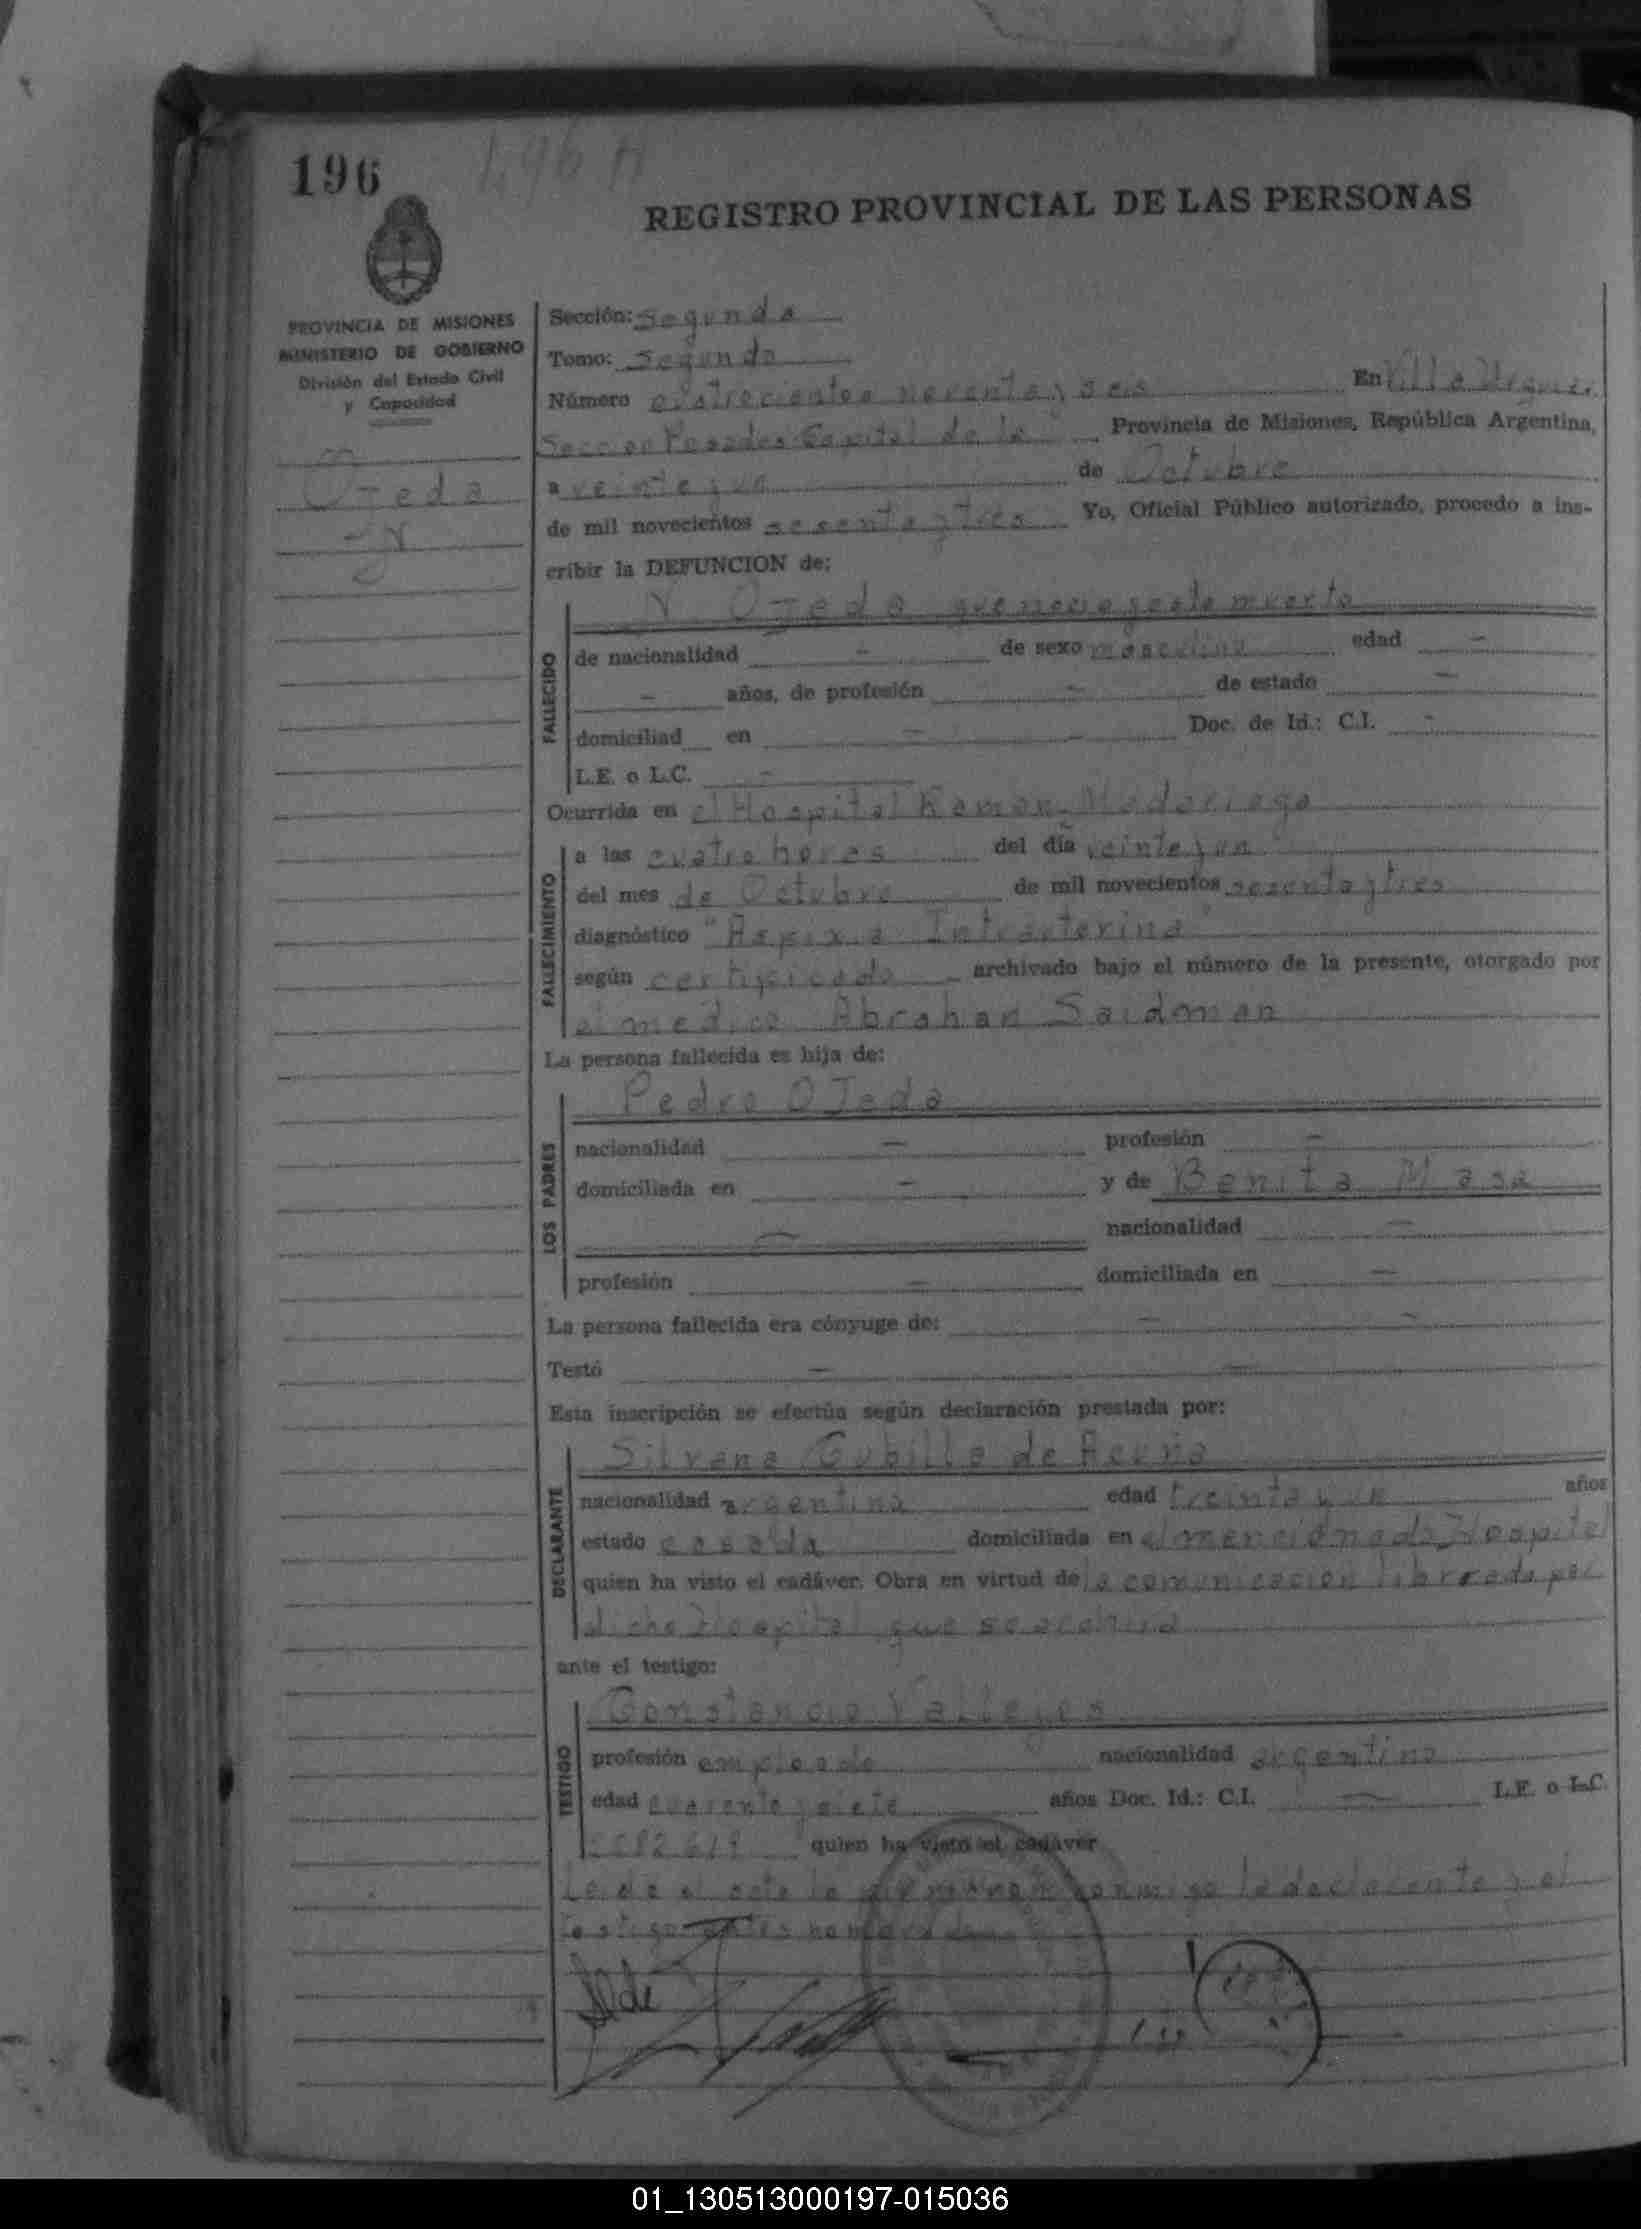 196
496 A
REGISTRO PROVINCIAL DE LAS PERSONAS
PROVINCIA DE MISIONES
MINISTERIO DE GOBIERNO
División del Estado Civil
y Capacidad
Ojeda
N
Sección: Segunda
Tomo: Segundo
Número cuatrocientos noventa y seis En Villa Urquiza
Seccion Posadas Capital de la Provincia de Misiones, República Argentina,
a veinte y un de Octubre
de mil novecientos sesenta y tres Yo, Oficial Público autorizado, procedo a ins-
cribir la DEFUNCION de:
N Ojeda que nacio y esta muerto
FALLECIDO
de nacionalidad - de sexo masculino edad -
- años, de profesión - de estado -
domiciliad en - - Doc. de Id.: C.I. -
L.E. o L.C. -
Ocurrida en el Hospital Ramon Madariaga
FALLECIMIENTO
a las cuatro horas del día veinte y un
del mes de Octubre de mil novecientos sesenta y tres
diagnóstico "Aspixia Intrauterina"
según certificado archivado bajo el número de la presente, otorgado por
el medico Abrahan Saidman
La persona fallecida es hija de:
LOS PADRES
Pedro Ojeda
nacionalidad - profesión -
domiciliada en - y de Benita Masa
- nacionalidad -
profesión - domiciliada en -
La persona fallecida era cónyuge de: - -
Testó - -
Esta inscripción se efectúa según declaración prestada por:
DECLARANTE
Silvana Cubilla de Acuña
nacionalidad argentina edad treinta y un años
estado casada domiciliada en el mencionado Hospital
quien ha visto el cadáver. Obra en virtud de la comunicación librada por
dicho Hospital que se archiva
ante el testigo:
TESTIGO
Constancio Vallejos
profesión empleado nacionalidad argentino
edad cuarenta y siete años Doc. Id.: C.I. - L.E. o L.C.
quien ha visto el cadáver
Leida el acta la firman conmigo la declarante y el
testigo antes nombrado
01_130513000197-015036